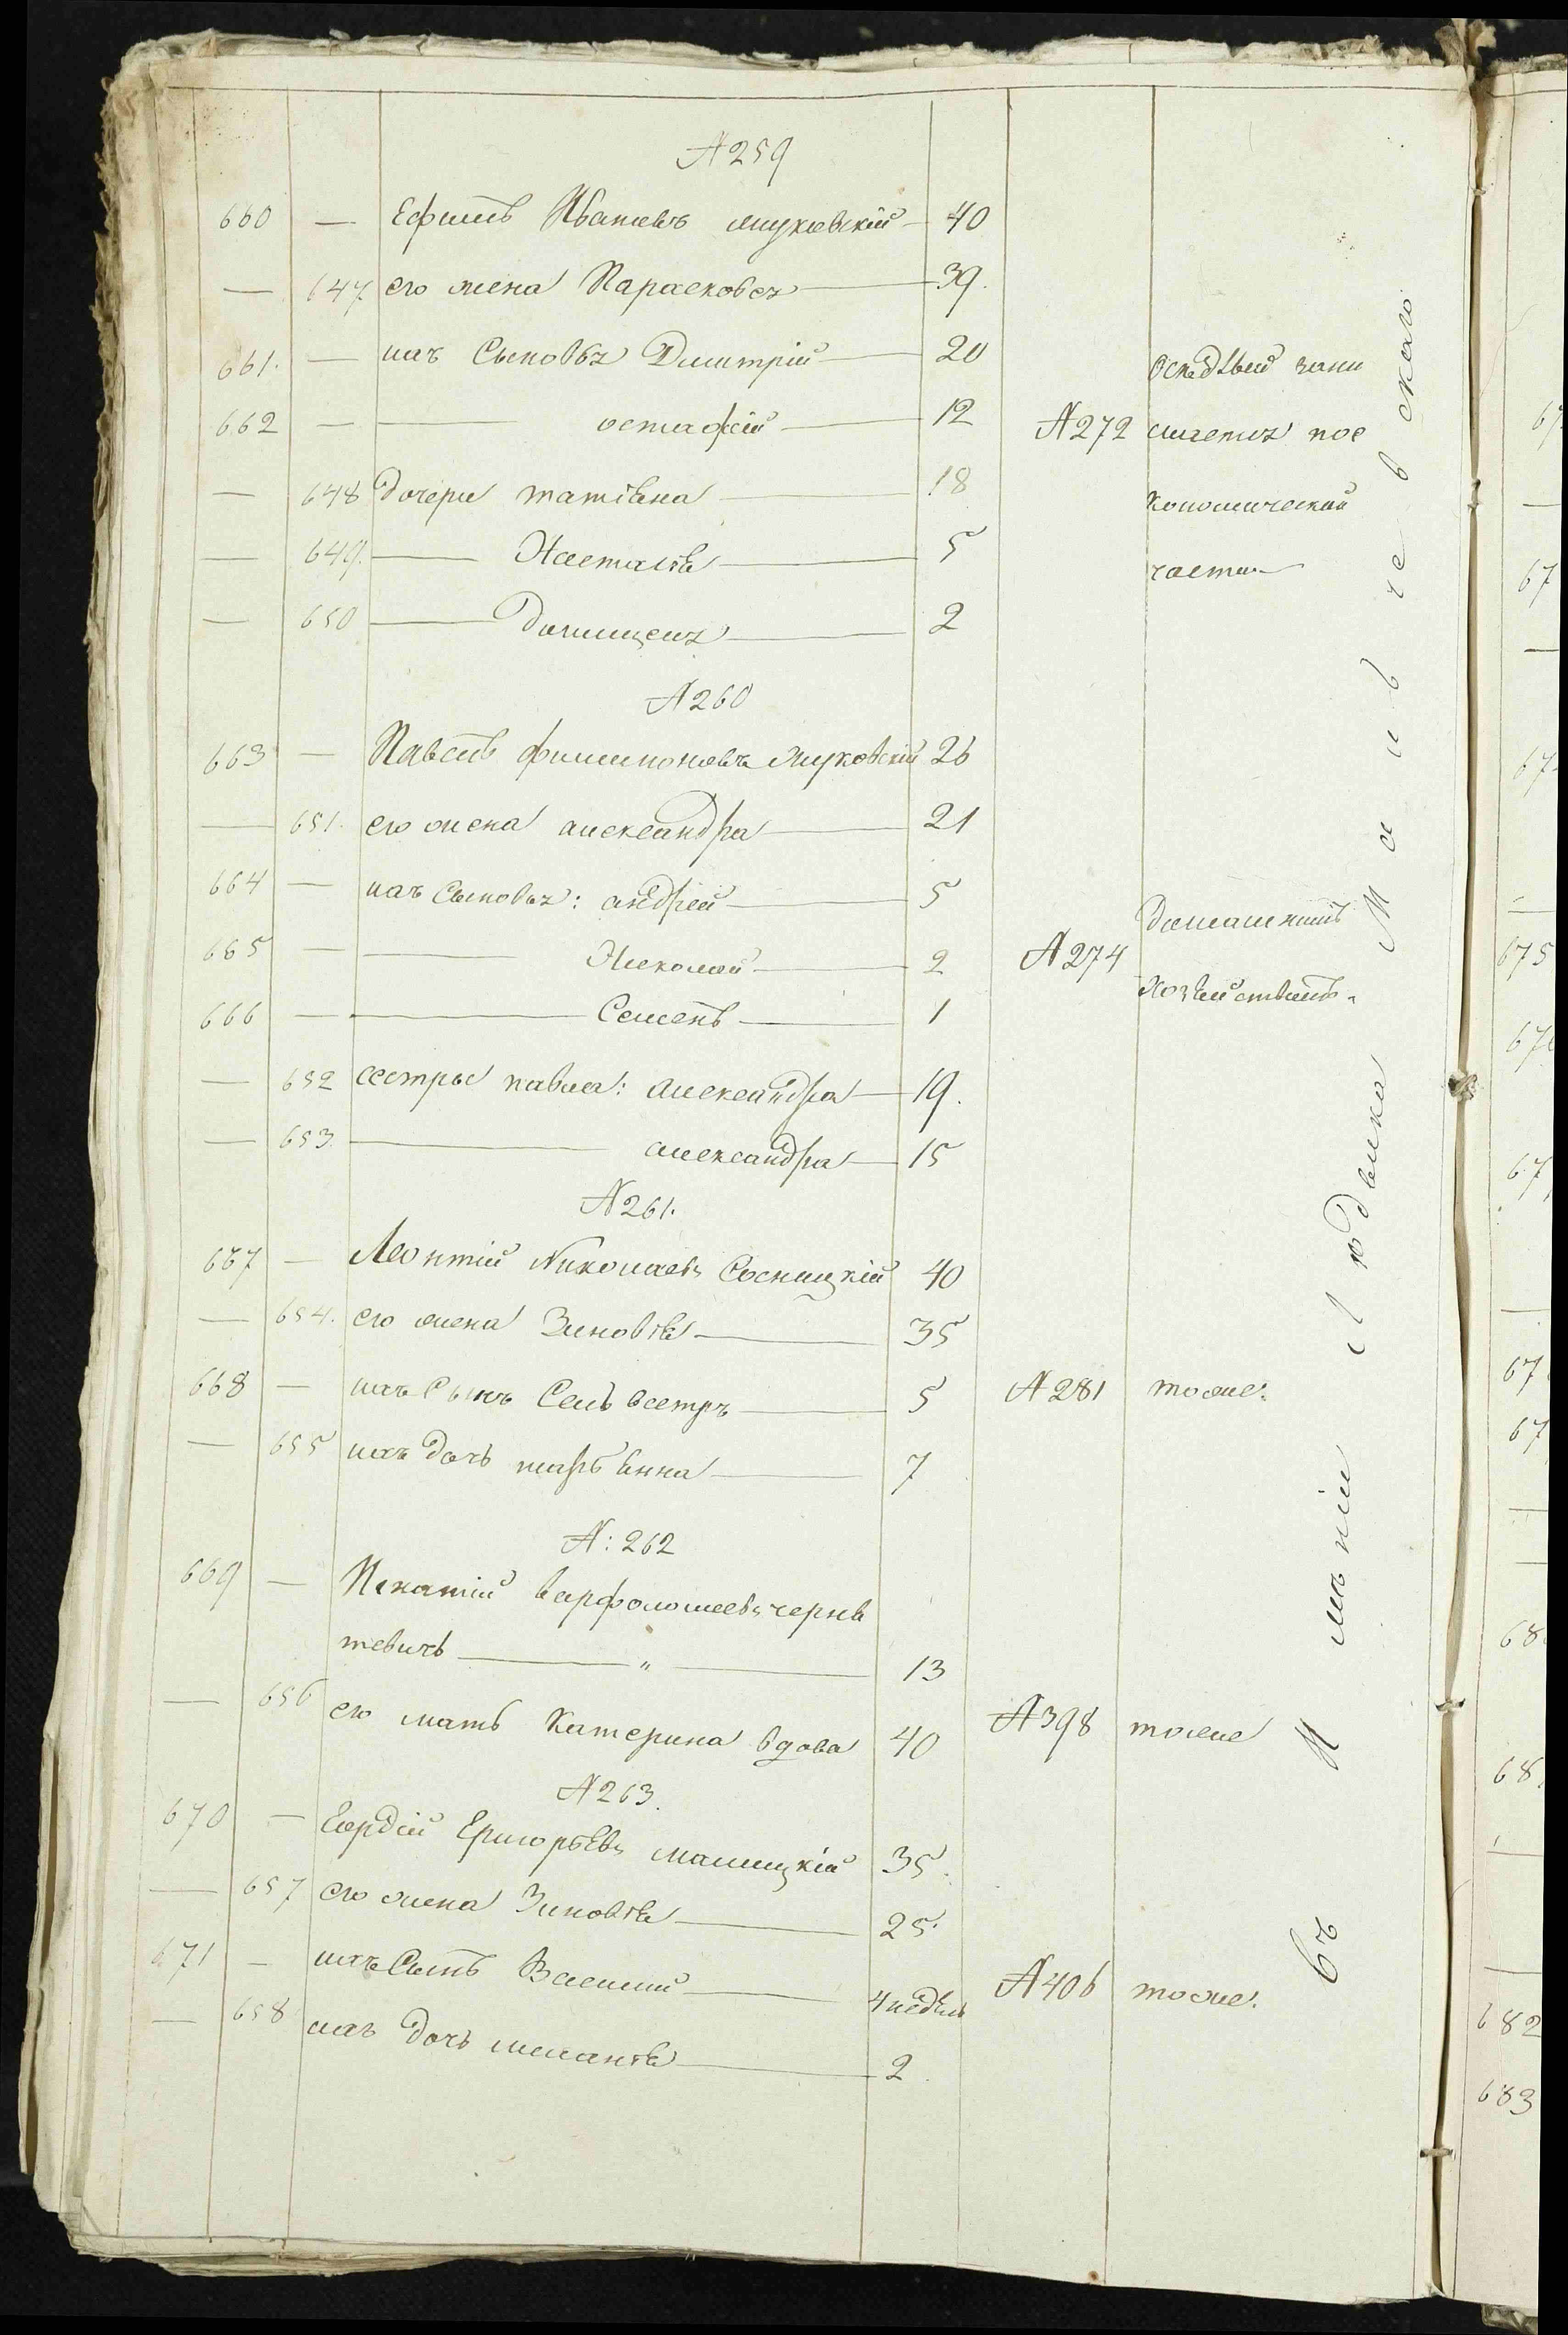 № 259
660 — Ефимъ Ивановъ Жуковскій — 40
— 647. его жена Парасковея — 39.
661. — ихъ Сыновья Димитрій — 20
662 — — остафій — 12
— 648 дочери татіяна — 18
— 649. — Настасія — 5
— 650 — Домицея — 2
№ 272
Оседлый зани
мается пое
кономической
части
№ 260
663 — Павелъ филимоновъ Жуковскій 26
— 651. его жена александра — 21
664 — ихъ Сыновья: андрей — 5
665 — — Николай — 2
666 — — Семенъ — 1
— 652 сестры павла: александра — 19.
— 653. — александра — 15
№ 274
домашнимъ
хозяйствомъ.
№ 261.
667 — Леонтій Николаевъ Сосницкій 40
— 654. его жена Зиновія — 35
668 — ихъ Сынъ Селивестръ — 5
— 655 ихъ дочь марьянна — 7
№ 281 тоже.
№: 262
669 — Игнатій варфоломеевъ черня
тевичъ — " — 13
— 656 его мать Катерина вдова 40
№ 398 тоже
№ 263.
670 — Гордій Григорьевъ малицкій 35.
— 657 его жена Зиновія — 25.
671 — ихъ Сынъ Василий — 4 недѣль
— 658 ихъ дочь меланія — 2.
№ 406 тоже.
въ имѣніи людвика